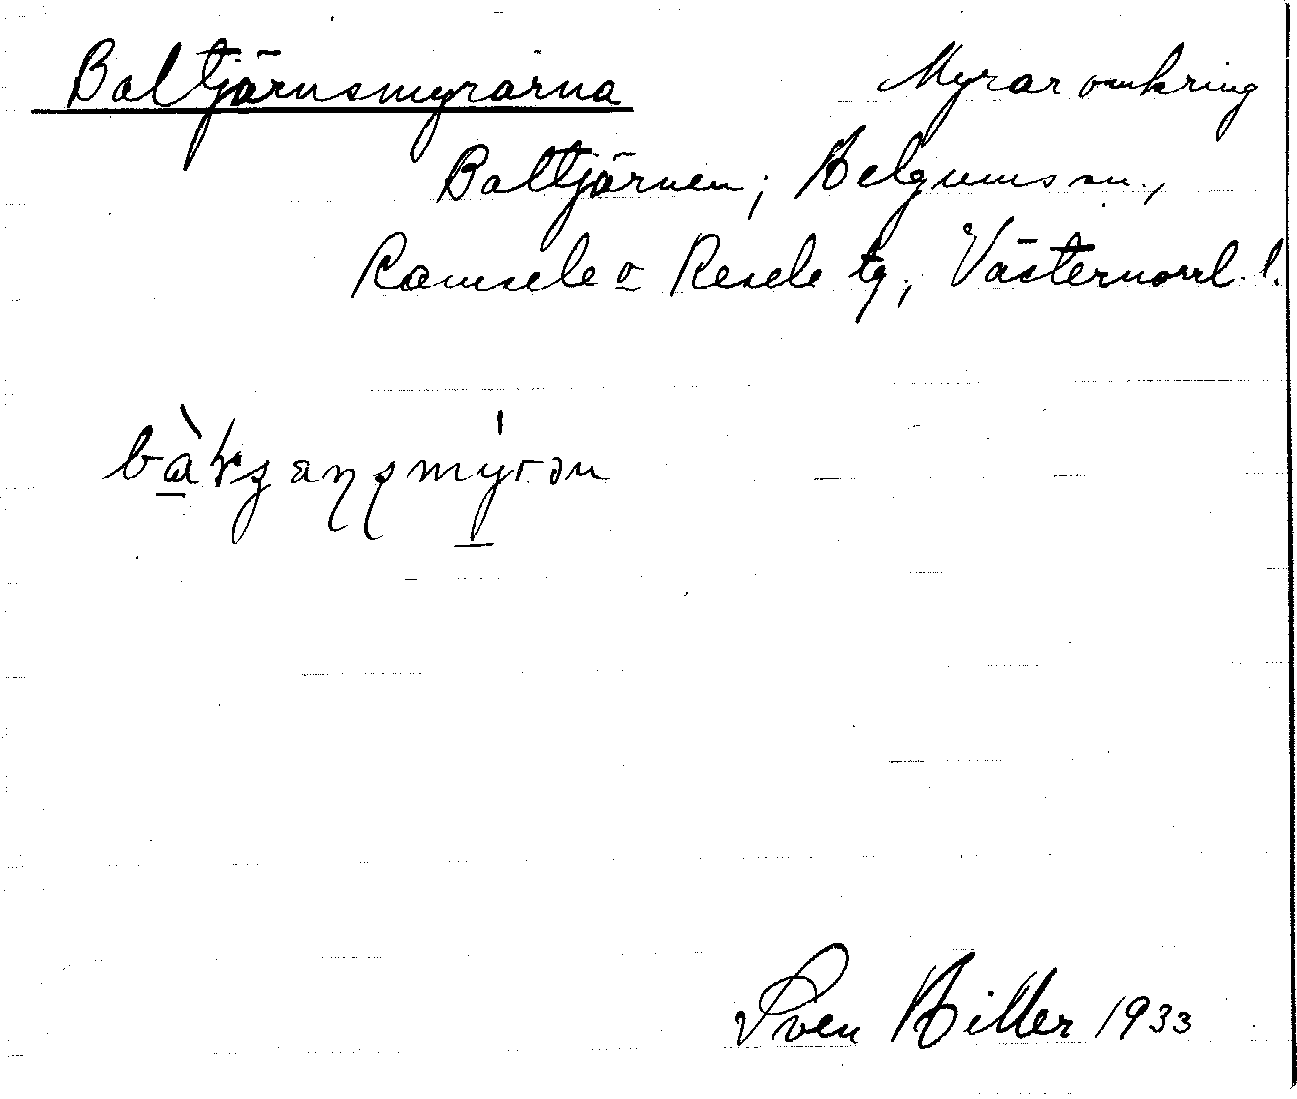 Baltjärnsmyrarna Myrar omkring
Baltjärnen; Helgums sn.,
Ramsele o Resele tg, Västernorrl. l.
Sven Hiller 1933